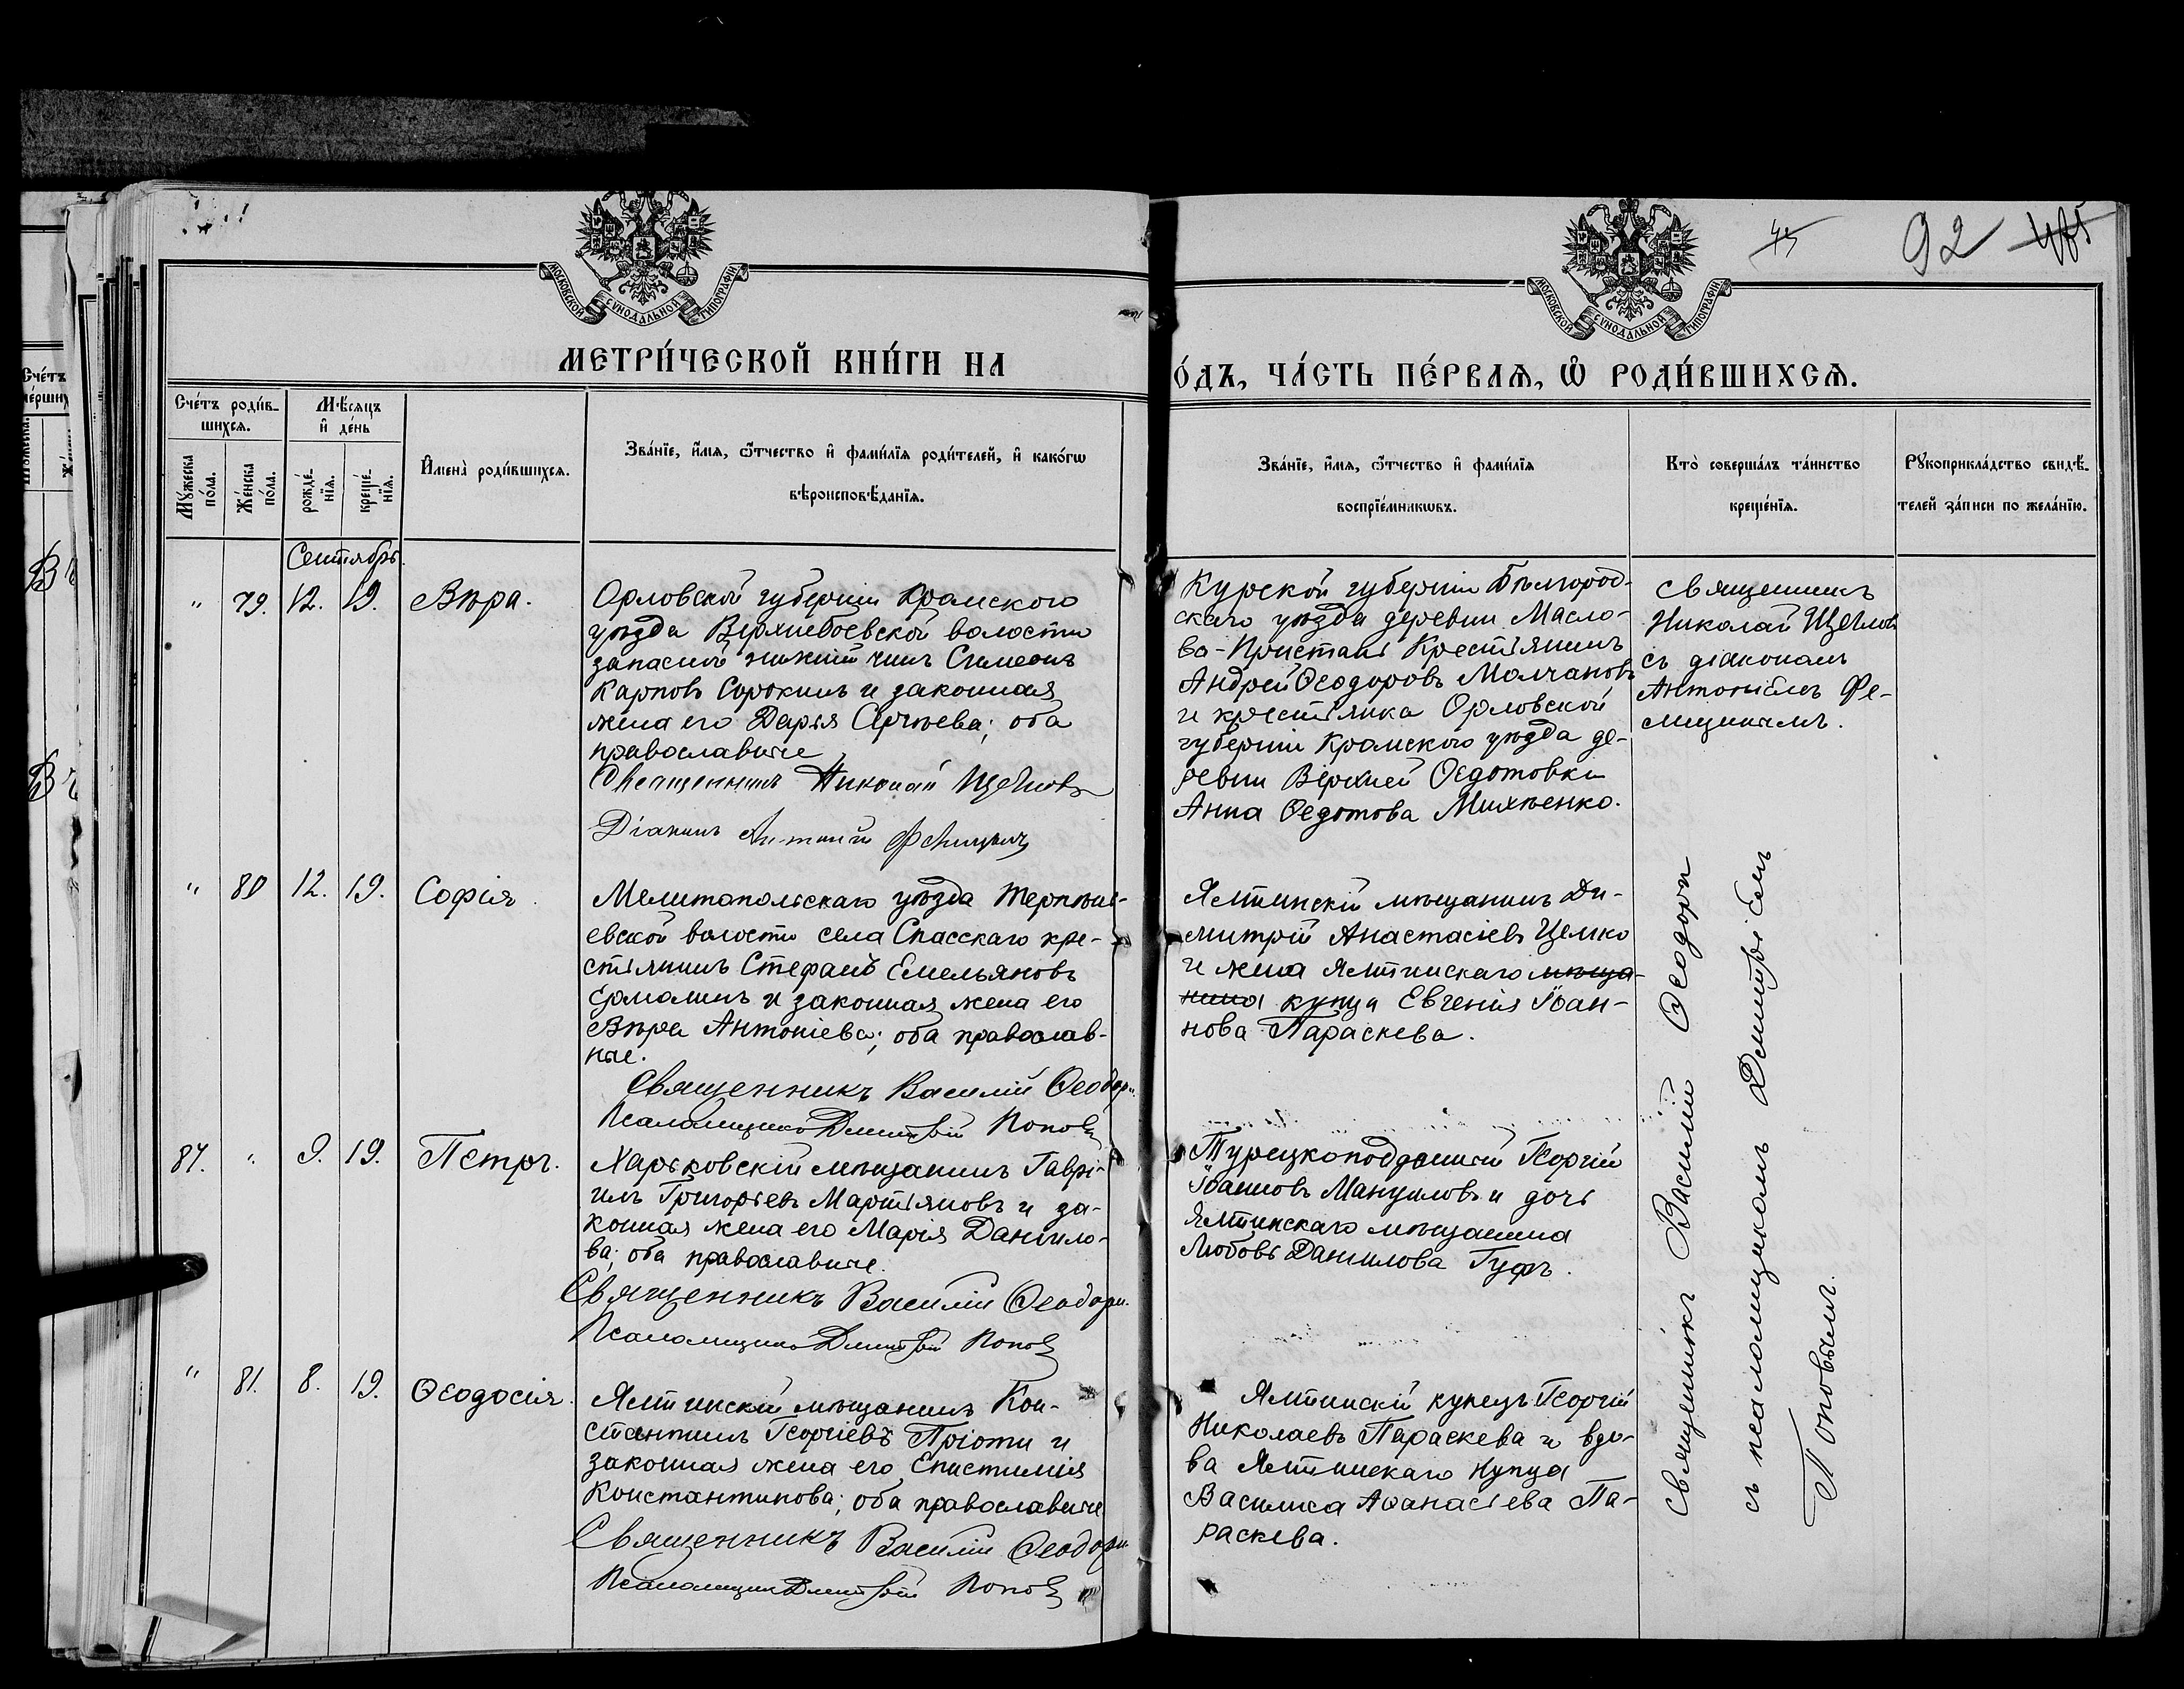 45 92 485
МОСКОВСКОЙ СѴНОДАЛЬНОЙ ТИПОГРАФІИ
МОСКОВСКОЙ СѴНОДАЛЬНОЙ ТИПОГРАФІИ
МЕТРИ́ЧЕСКОЙ КНИ́ГИ НА
О́ДЪ, ЧА́СТЬ ПЕ́РВАЯ, Ѡ РОДИ́ВШИХСЯ.
Сче́тъ роди́в-
шихся.
Мѣ́сяцъ
и де́нь
Му́жеска
по́ла.
Же́нска
по́ла.
рожде́-
нїя.
креще́-
нїя.
Имена̀ роди́вшихся.
Зва́нїе, и́мя, ѻ́тчество и фами́лїя роди́телей, и како́гѡ
вѣроисповѣ́данїя.
Зва́нїе, и́мя, ѻ́тчество и фами́лїя
воспрїе́мникѡвъ.
Кто̀ соверша́лъ та́инство
креще́нїя.
Рꙋкоприкла́дство свидѣ́-
телей за́писи по жела́нїю.
Сентябрь.
" 79. 12. 19. Вѣра.
Орловской губерніи Кромскаго
уѣзда Верхнебоевской волости
запасный нижній чинъ Симеонъ
Карповъ Сорокинъ и законная
жена его Дарья Сергѣева; оба
православные
Священникъ Николай Щеглов
Діаконъ Антоній
Курской губерніи Бѣлгород-
скаго уѣзда деревни Масло-
ва-Пристань Крестьянинъ
Андрей Ѳеодоровъ Молчановъ
и крестьянка Орловской
губерніи Кромскаго уѣзда де-
ревни Верхней Ѳедотовки
Анна Ѳедотова Михѣенко.
Священникъ
Николай Щеглов
съ діакономъ
Антоніемъ Фе-
" 80 12. 19. Софія.
Мелитопольскаго уѣзда Терпѣні-
евской волости села Спасскаго кре-
стьянинъ Стефанъ Емельяновъ
Ермолинъ и законная жена его
Вѣра Антоніева; оба православ-
ные.
Священникъ Василій Ѳеодори
Псаломщикъ Димитрій Поповъ
Ялтинскій мѣщанинъ Ди-
митрій Анастасіевъ Цемко
и жена Ялтинскаго мѣща-
нина купца Евгенія Іоан-
нова Параскева.
87. " 9. 19. Петръ.
Харьковскій мѣщанинъ Гаврі-
илъ Григорьевъ Мартьяновъ и за-
конная жена его Марія Данило-
ва; оба православные.
Священникъ Василій Ѳеодори.
Псаломщикъ Димитрій Поповъ
Турецкоподданный Георгій
Іоанновъ Мануиловъ и дочь
Ялтинскаго мѣщанина
Любовь Данилова Гуфъ.
" 81. 8. 19. Ѳеодосія.
Ялтинскій мѣщанинъ Кон-
стантинъ Георгіевъ Пріоти и
законная жена его Епистимія
Константинова; оба православные
Священникъ Василій Ѳеодори
Псаломщикъ Димитрій Поповъ
Ялтинскій купецъ Георгій
Николаевъ Параскева и вдо-
ва Ялтинскаго купца
Василиса Аѳанасіева Па-
раскева.
Священникъ Василій Ѳеодори
съ псаломщикомъ Димитріемъ
Поповымъ.